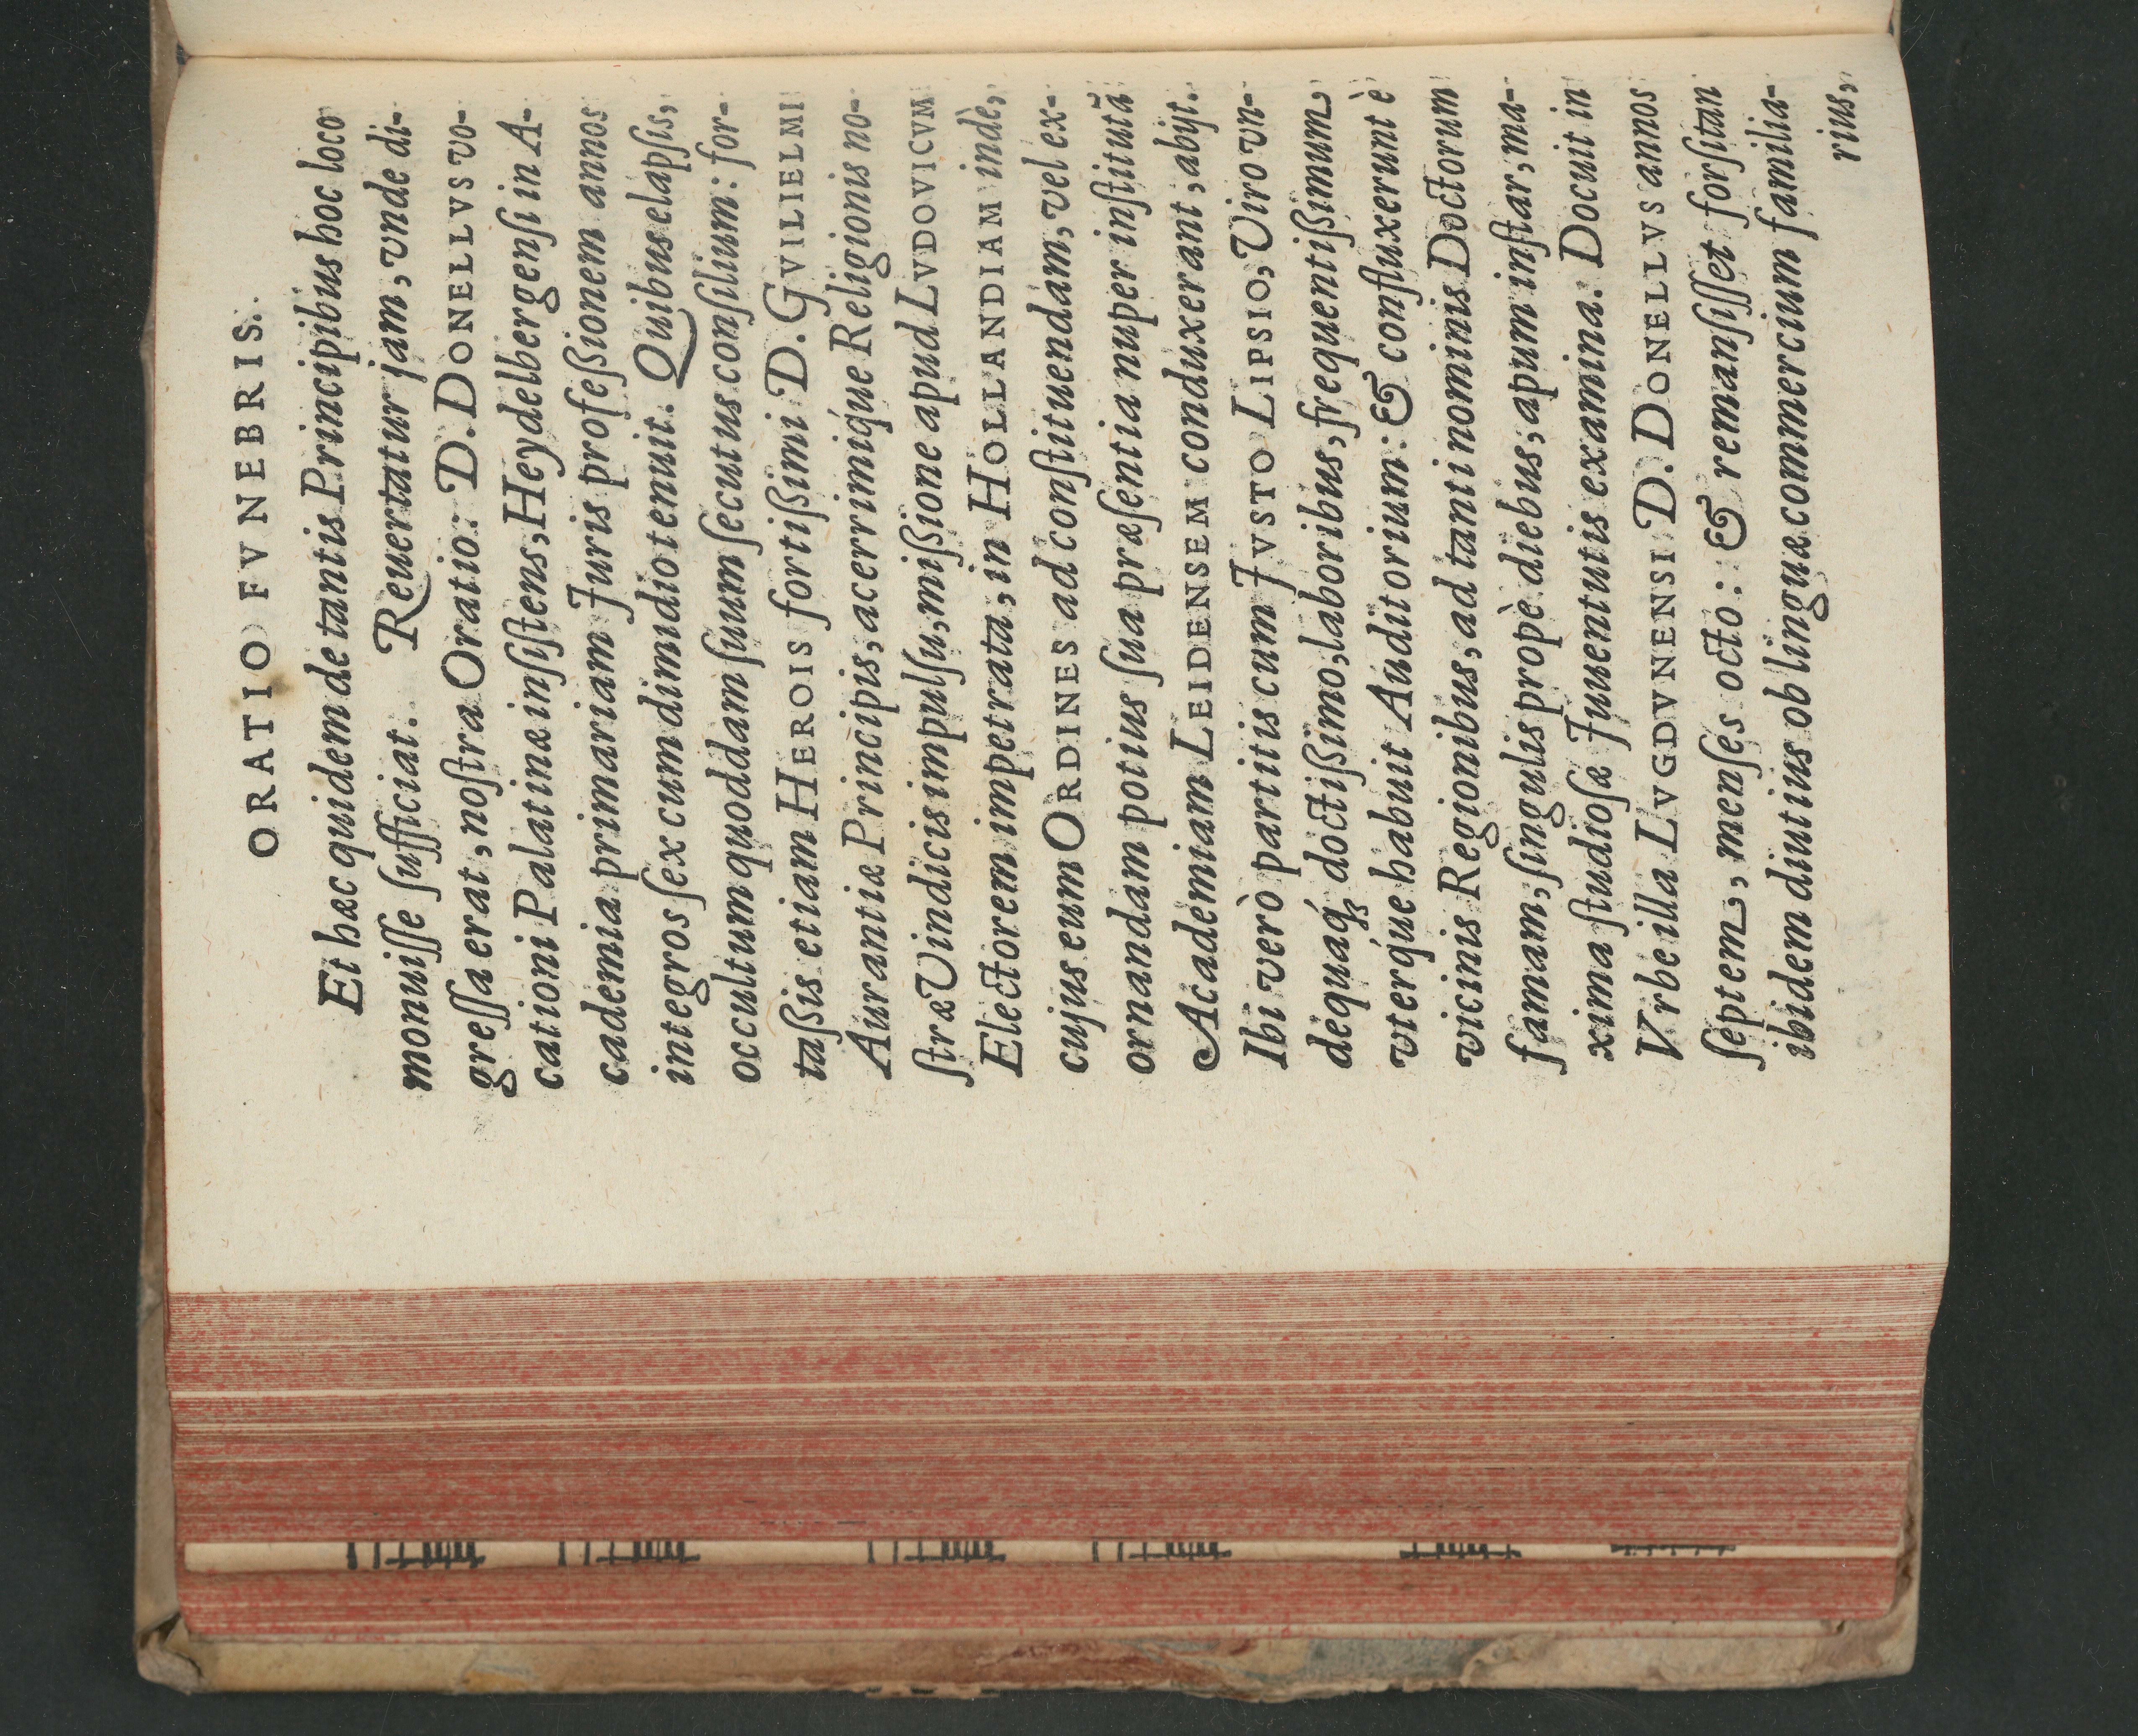 ORATIO FVNEBRIS.
Et hæc quidem de tantis Principibus hoc loco
monuiſſe ſufficiat. Reuertatur jam, vnde di-
greſſa erat, noſtra Oratio: D. DONELLVS vo-
cationi Palatinæ inſiſtens, Heydelbergenſi in A-
cademia primariam Juris profeßionem annos
integros ſex cum dimidio tenuit. Quibus elapſis,
occultum quoddam ſuum ſecutus conſilium: for-
taßis etiam HEROIS fortißimi D. GVILIELMI
Aurantiæ Principis, acerrimiq́ue Religionis no-
ſtræ Vindicis impulſu, mißione apud LVDOVICVM
Electorem impetrata, in HOLLANDIAM indè,
cujus eum ORDINES ad conſtituendam, vel ex-
ornandam potius ſua præſentia nuper inſtitutã
Academiam LEIDENSEM conduxerant, abijt.
Ibi verò partitis cum JVSTO LIPSIO, Viro vn-
dequaq́; doctißimo, laboribus, frequentißimum,
vterq́ue habuit Auditorium: & confluxerunt è
vicinis Regionibus, ad tanti nominis Doctorum
famam, ſingulis propè diebus, apum inſtar, ma-
xima ſtudioſæ Juuentutis examina. Docuit in
Vrbe illa LVGDVNENSI D. DONELLVS annos
ſeptem, menſes octo: & remanſiſſet forſitan
ibidem diutius ob linguæ commercium familia-
rius,